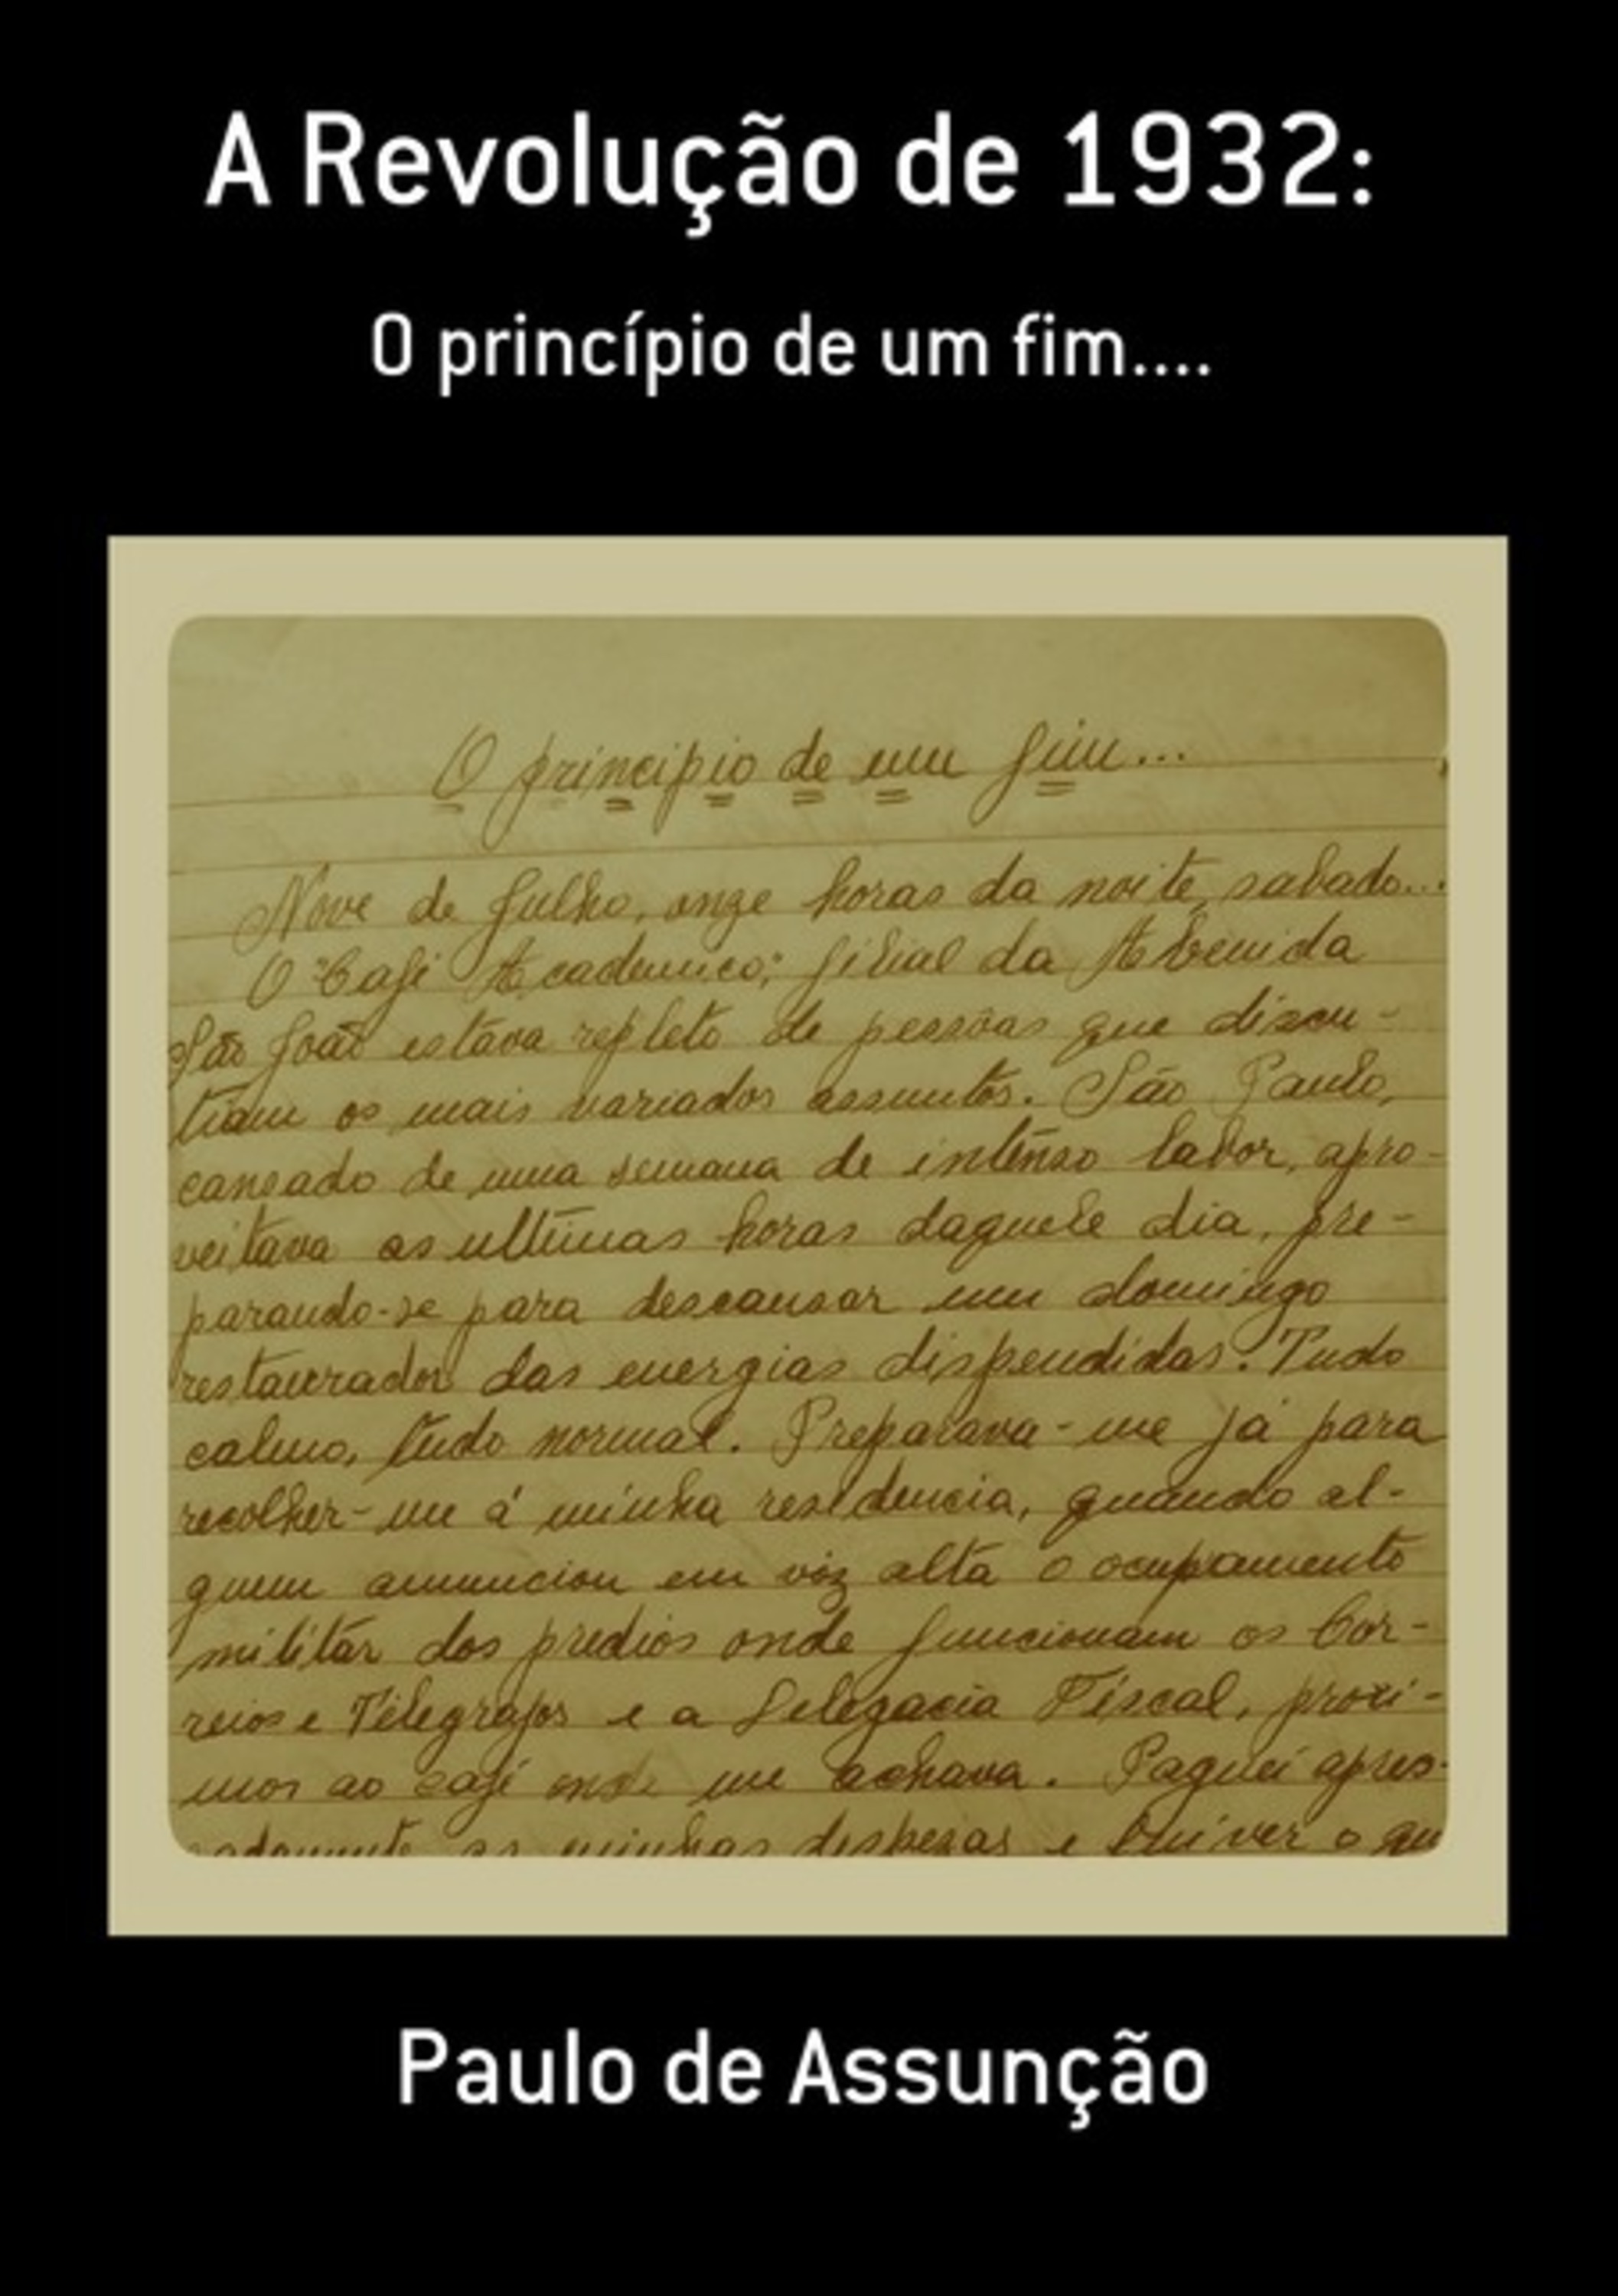 A Revolução de 1932:
O princípio de um fim....
O principio de um fim...
Nove de Julho, onze horas da noite, sabado...
O "Café Academico", filial da Avenida
São João estáva repleto de pessôas que discu-
tiam os mais variados assuntos. São Paulo,
cançado de uma semana de intenso labor, apro-
veitava as ultimas horas daquele dia, pre-
parando-se para descansar um domingo
restaurador das energias dispendidas. Tudo
calmo, tudo normal. Preparava-me já para
recolher-me á minha residencia, quando al-
guem annunciou em vóz alta o ocupamento
militár dos predios onde funcionam os Cor-
reios e Telegrafos e a Delegacia Fiscal, proxi-
mos ao café onde me achava. Paguei apres-
sadamente as minhas despezas e fui ver o qu
Paulo de Assunção